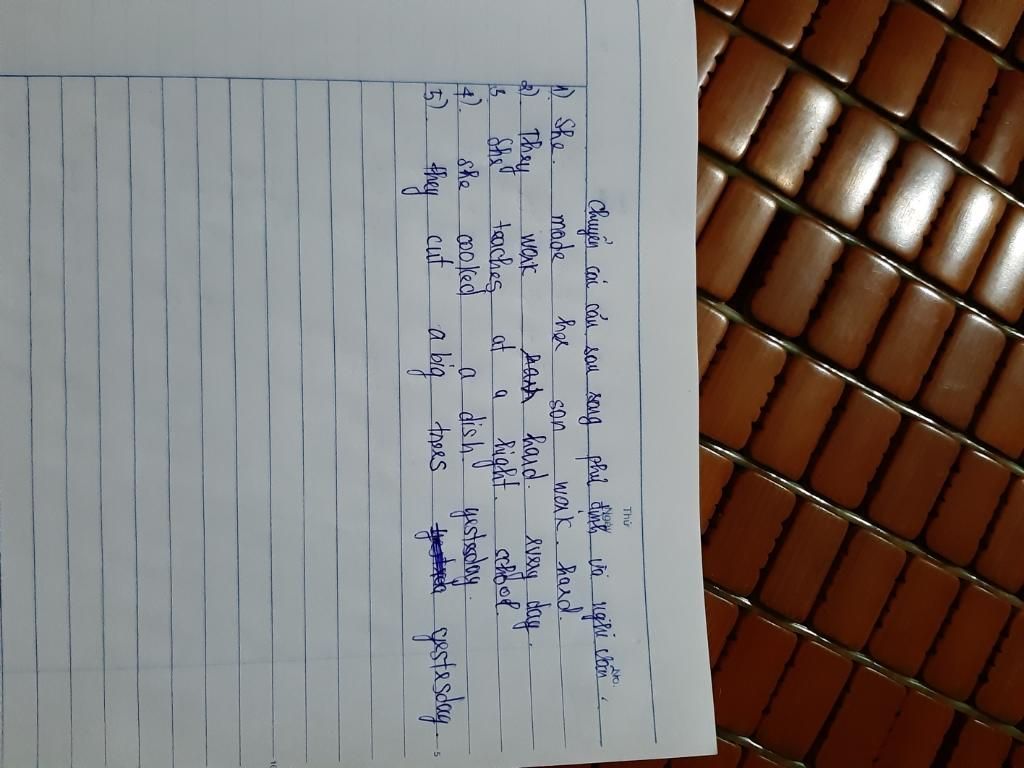 Thứ
Ngày
chuyển các câu sau sang phủ định và nghi vấn.
1) She made her son work hard.
2) They work hard every day.
3 she teaches at a hight school.
4) she cooked a dish yesterday.
5) they cut a big trees yesterday
5
10